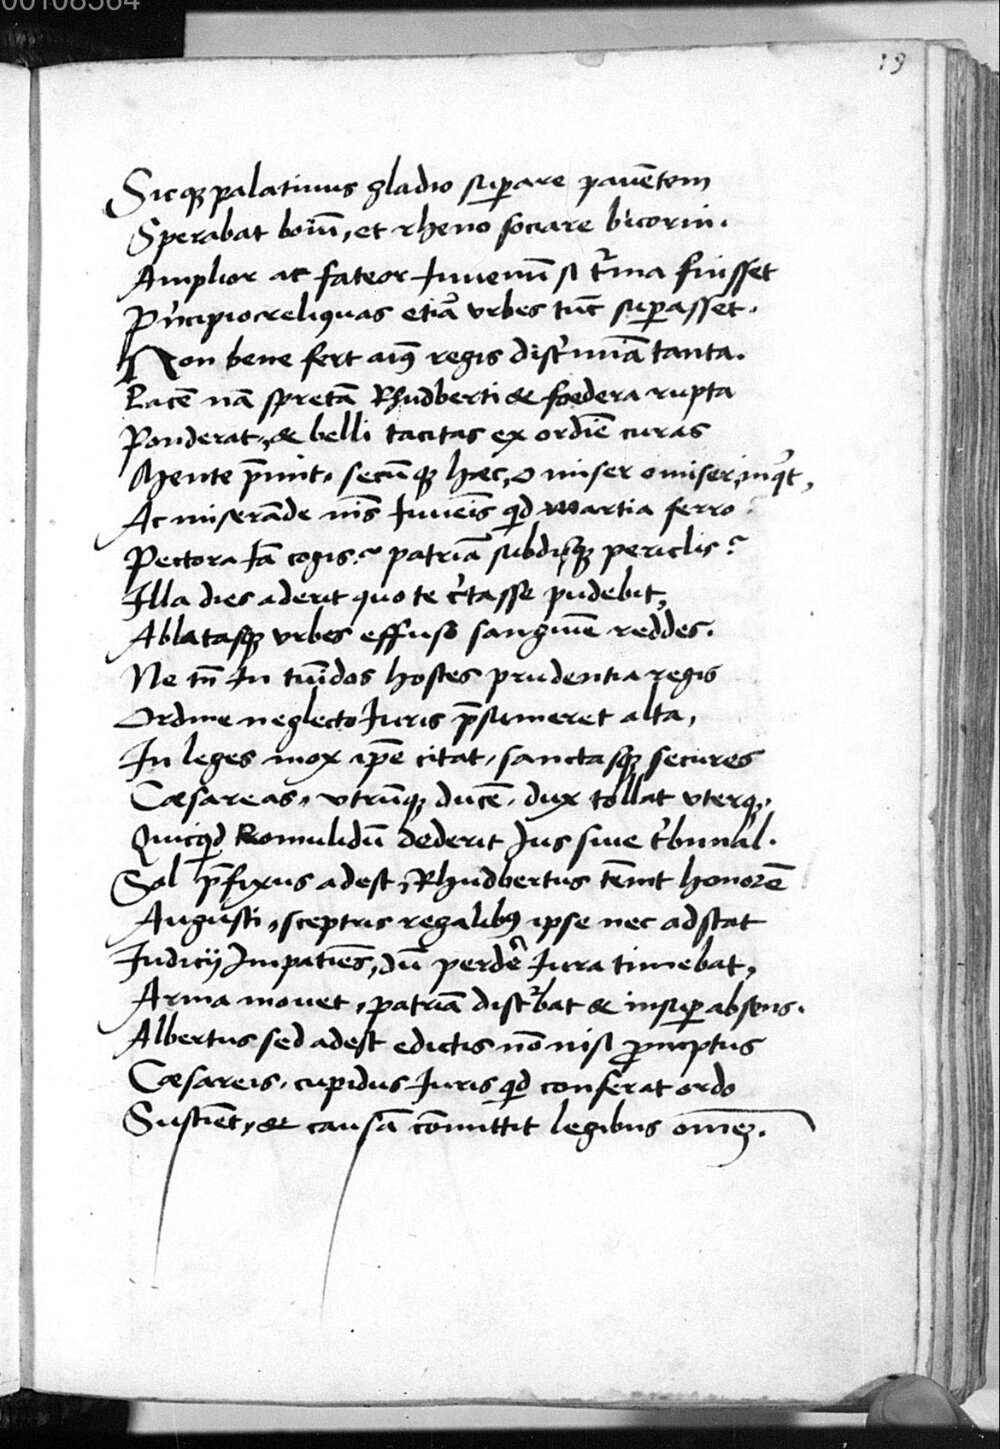 00108564
19
Sicqꝫ palatinus gladio suꝑare pauētem
Sperabat boiū, et rheno sociare bicorni.
Amplior at fateor Iuuenū si t̉ma fuisset
Pͥncipio reliquas etiā vrbes tūc suꝑasset.
Non bene fert aiꝰ regis discͥmīa tanta.
Pacē nā spretā Rhudberti & foedera rupta
Ponderat, & belli tacitas ex ordīe curas
Mente p̄mit. secūqꝫ hæc, o miser o miser, inqͥt,
Ac miserāde nīs Iuueīs qͥd martia ferro
Pectora Iā cogis? patriā subdisqꝫ periclis?
Illa dies aderit quo te c̉tasse pudebit,
Ablatasqꝫ vrbes effuso sanguīe reddes.
Ne tn̄ In tūidos hostes prudentia regis
Ordine neglecto Iuris p̄sumeret alta,
In leges mox ip̄e citat, sanctasqꝫ secures
Cæsareas, vtrūqꝫ ducē. dux tollat vterqꝫ,
Quicqͥd Romulidū dederit Ius siue tͥbunal.
Sol p̄fixus adest, Rhudbertus tēnit honorē
Augusti, sceptris regalibꝰ ipse nec adstat
Iudicij Impatiēs, dū perder̄ Iura timebat,
Arma mouet, patriā distᷣbat & insuꝑ absens.
Albertus sed adest edictis nō nisi ꝓmptus
Cæsareis, cupidus Iuris qͥd conferat ordo
Sustiēt, & causā cōmittit legibus omēꝫ.